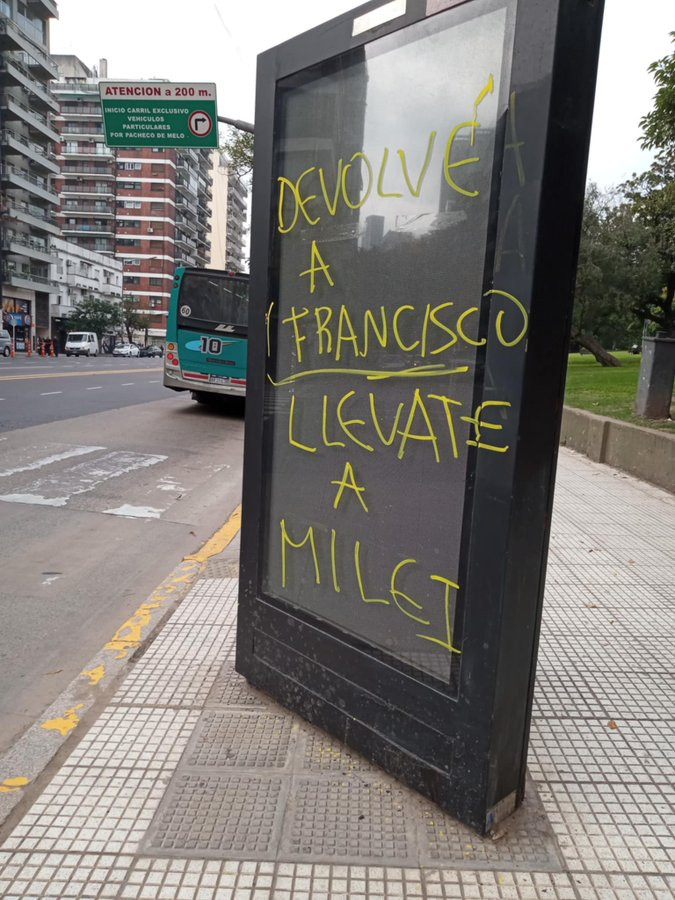 ATENCION a 200 m.
INICIO CARRIL EXCLUSIVO
VEHICULOS
PARTICULARES
POR PACHECO DE MELO
60
10
DEVOLVÉ
A
FRANCISCO
LLEVATE
A
MILEI